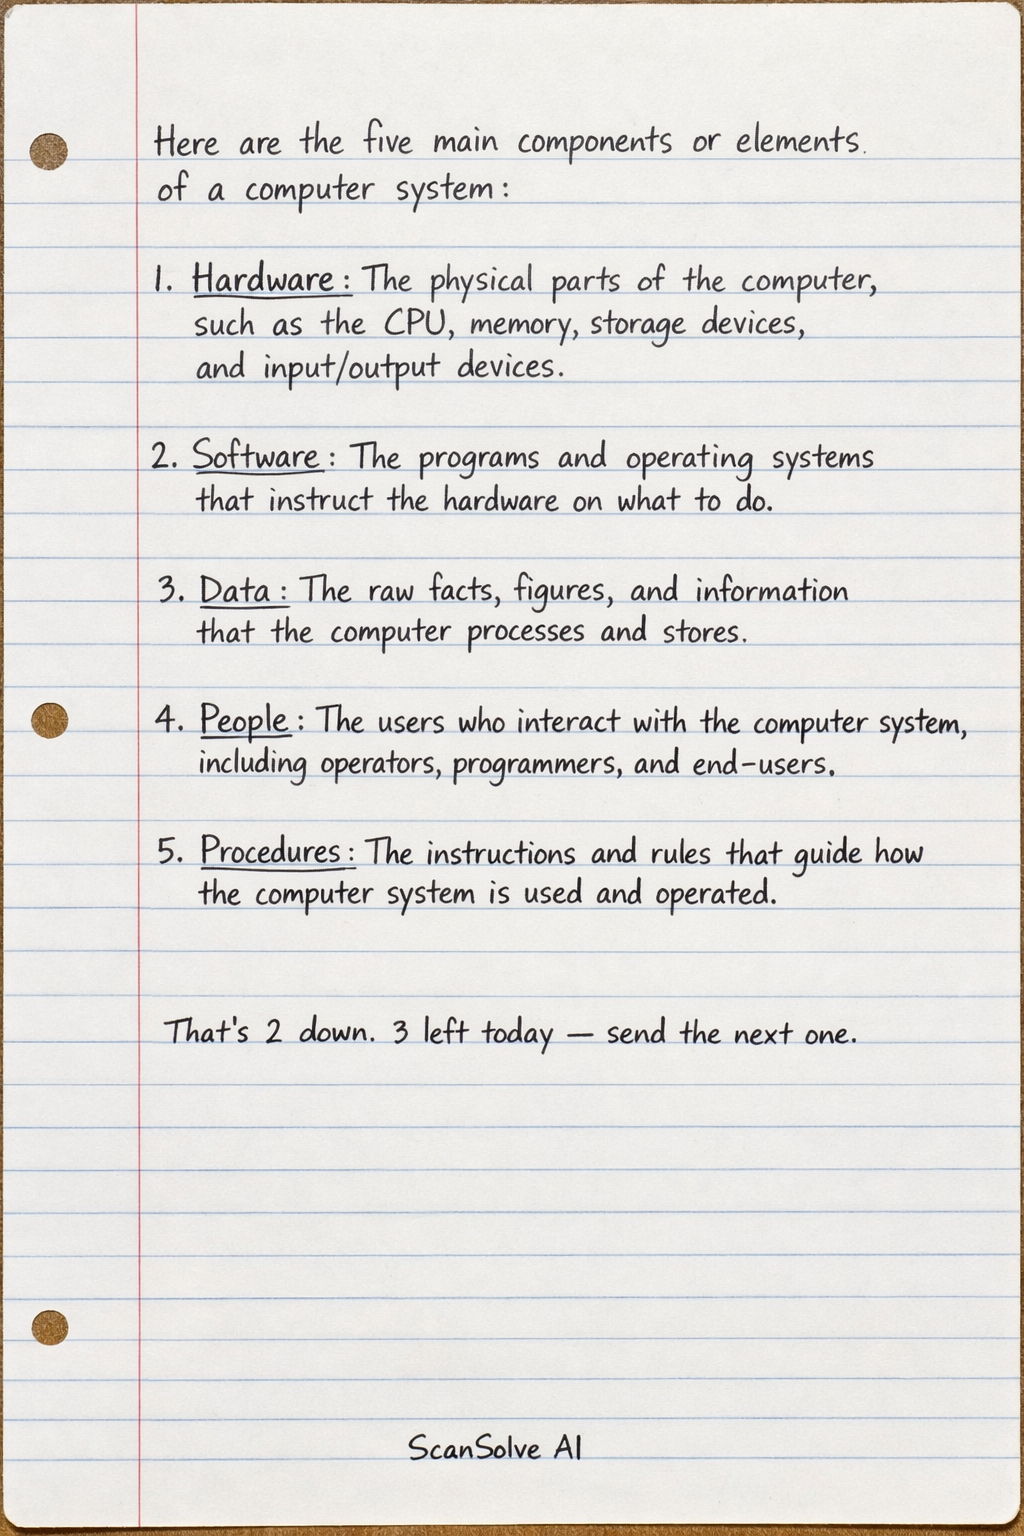 Here are the five main components or elements.
of a computer system:
1. Hardware: The physical parts of the computer,
such as the CPU, memory, storage devices,
and input/output devices.
2. Software: The programs and operating systems
that instruct the hardware on what to do.
3. Data: The raw facts, figures, and information
that the computer processes and stores.
4. People: The users who interact with the computer system,
including operators, programmers, and end-users.
5. Procedures: The instructions and rules that guide how
the computer system is used and operated.
That's 2 down. 3 left today — send the next one.
ScanSolve AI